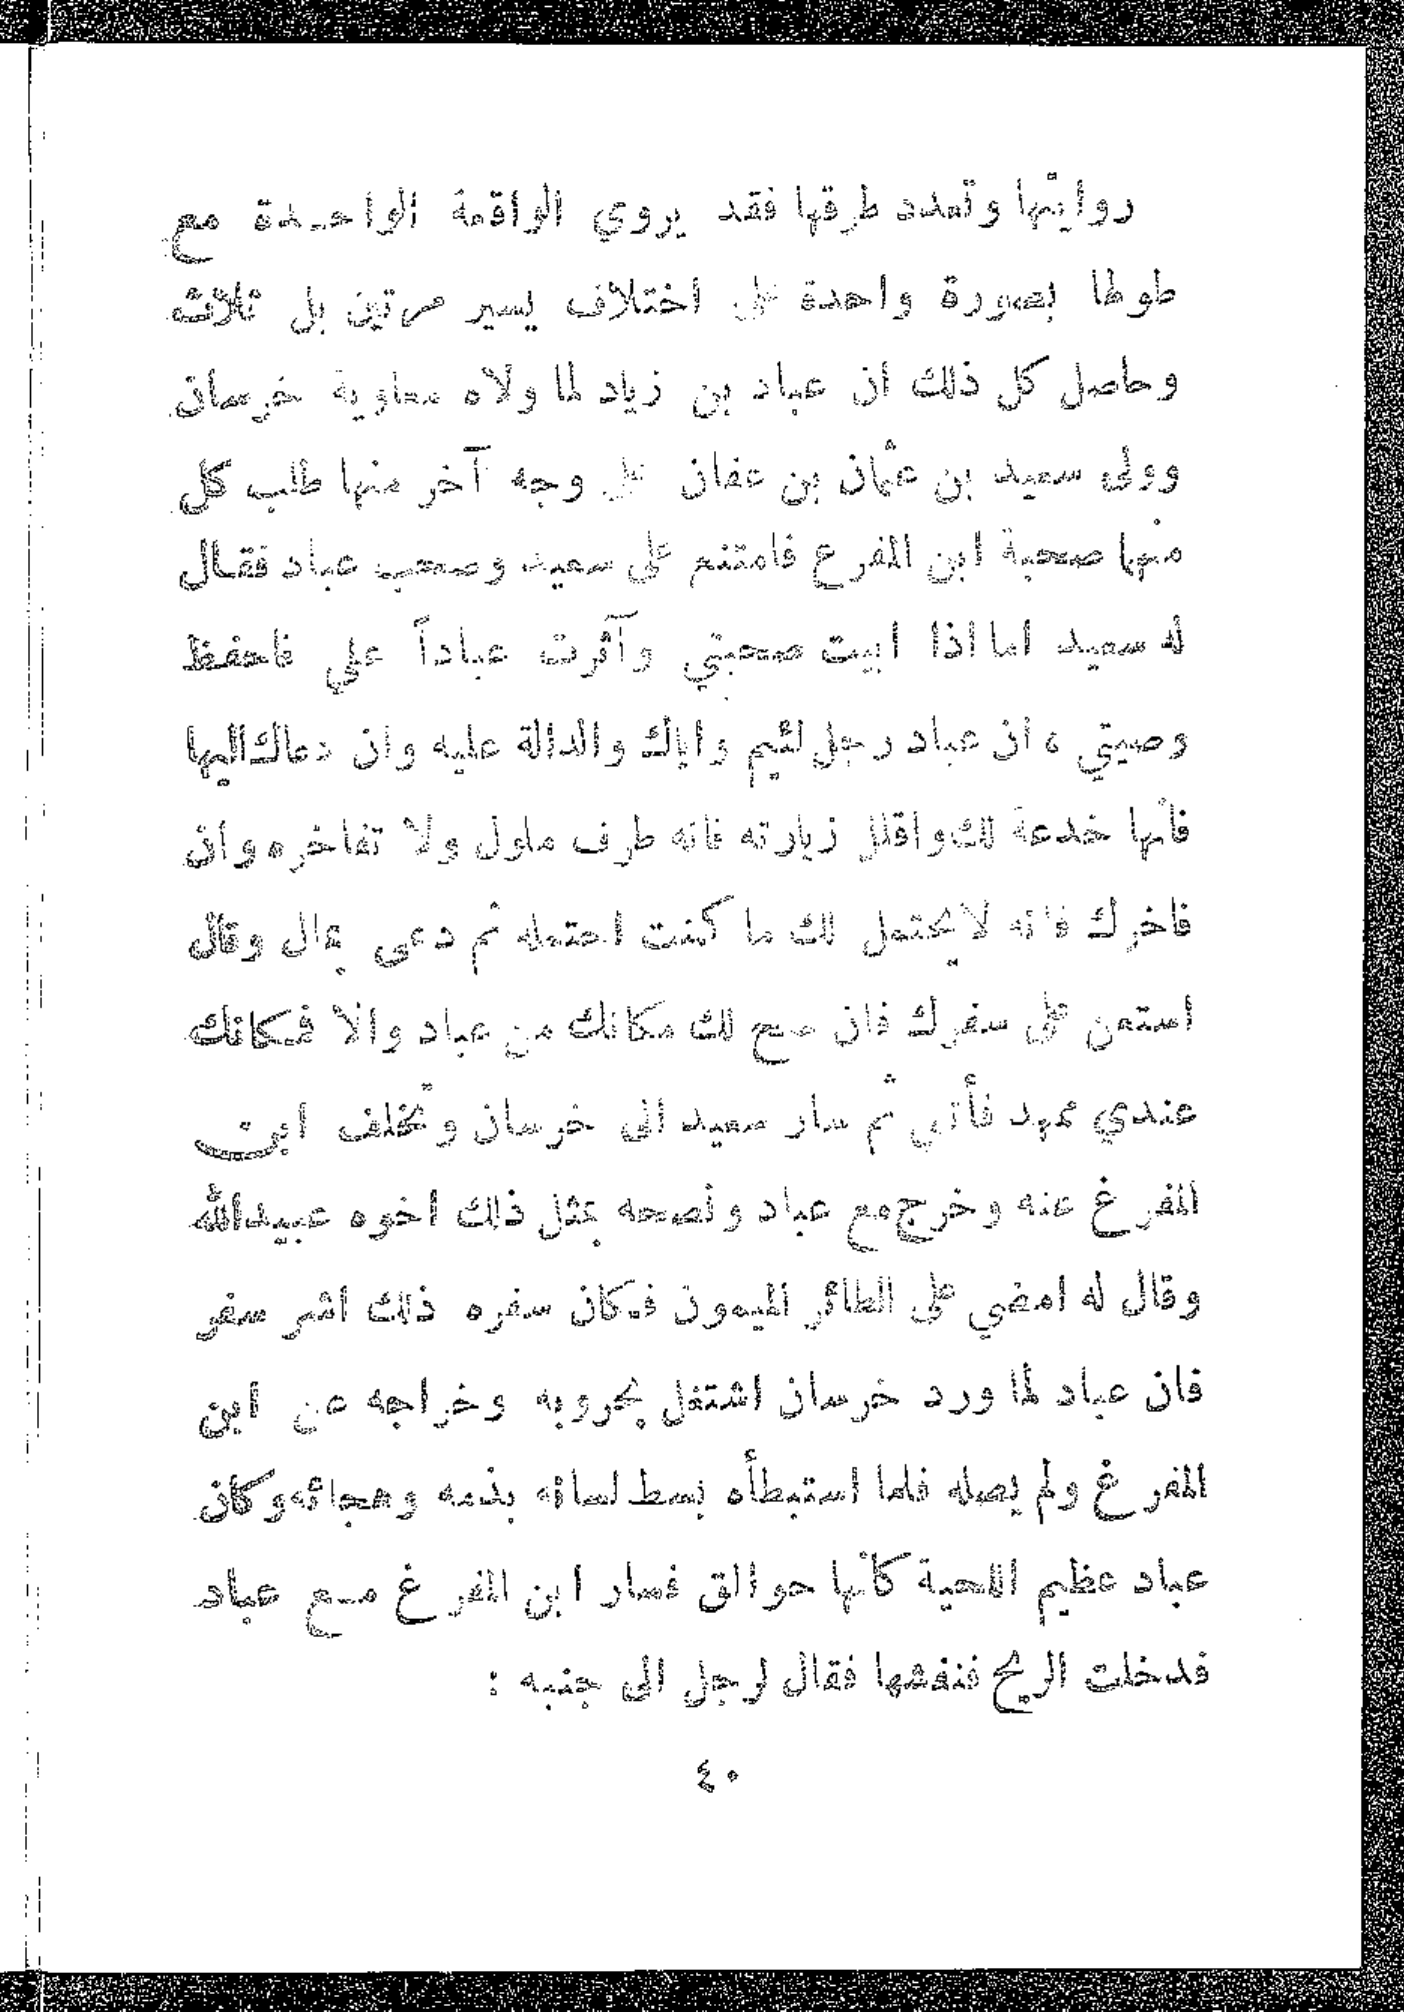 روايتها وتعدد طرقها فقد يروي الواقعة الواحدة مع
طولها بصورة واحدة على اختلاف يسير مرتين بل ثلاث
وحاصل كل ذلك ان عباد بن زياد لما ولاه معاوية خرسان
وولى سعيد بن عثمان بن عفان على وجه آخر منها طلب كل
منها صحبة ابن المفرع فامتنع على سعيد وصحب عباد فقال
له سعيد اما اذا ابيت صحبتي وآثرت عباداً علي فاحفظ
وصيتي ، ان عباد رجل لئيم واياك والدالة عليه وان دعاك اليها
فانها خدعة لك واقلل زيارته فانه طرف ملول ولا تفاخره وان
فاخرك فانه لا يحتمل لك ما كنت احتمله ثم دعى بمال وقال
استعن على سفرك فان صح لك مكانك من عباد والا فمكانك
عندي ممهد فأتني ثم سار سعيد الى خرسان وتخلف ابن
المفرغ عنه وخرج مع عباد ونصحه بمثل ذلك اخوه عبيدالله
وقال له امضي على الطائر الميمون فكان سفره ذلك اشر سفر
فان عباد لما ورد خرسان اشتغل بحروبه وخراجه عن ابن
المفرغ ولم يصله فلما استبطأه بسط لسانه بذمه وهجائه وكان
عباد عظيم اللحية كأنها جوالق فسار ابن المفرغ مع عباد
فدخلت الريح فنفشها فقال لرجل الى جنبه :
٤٠